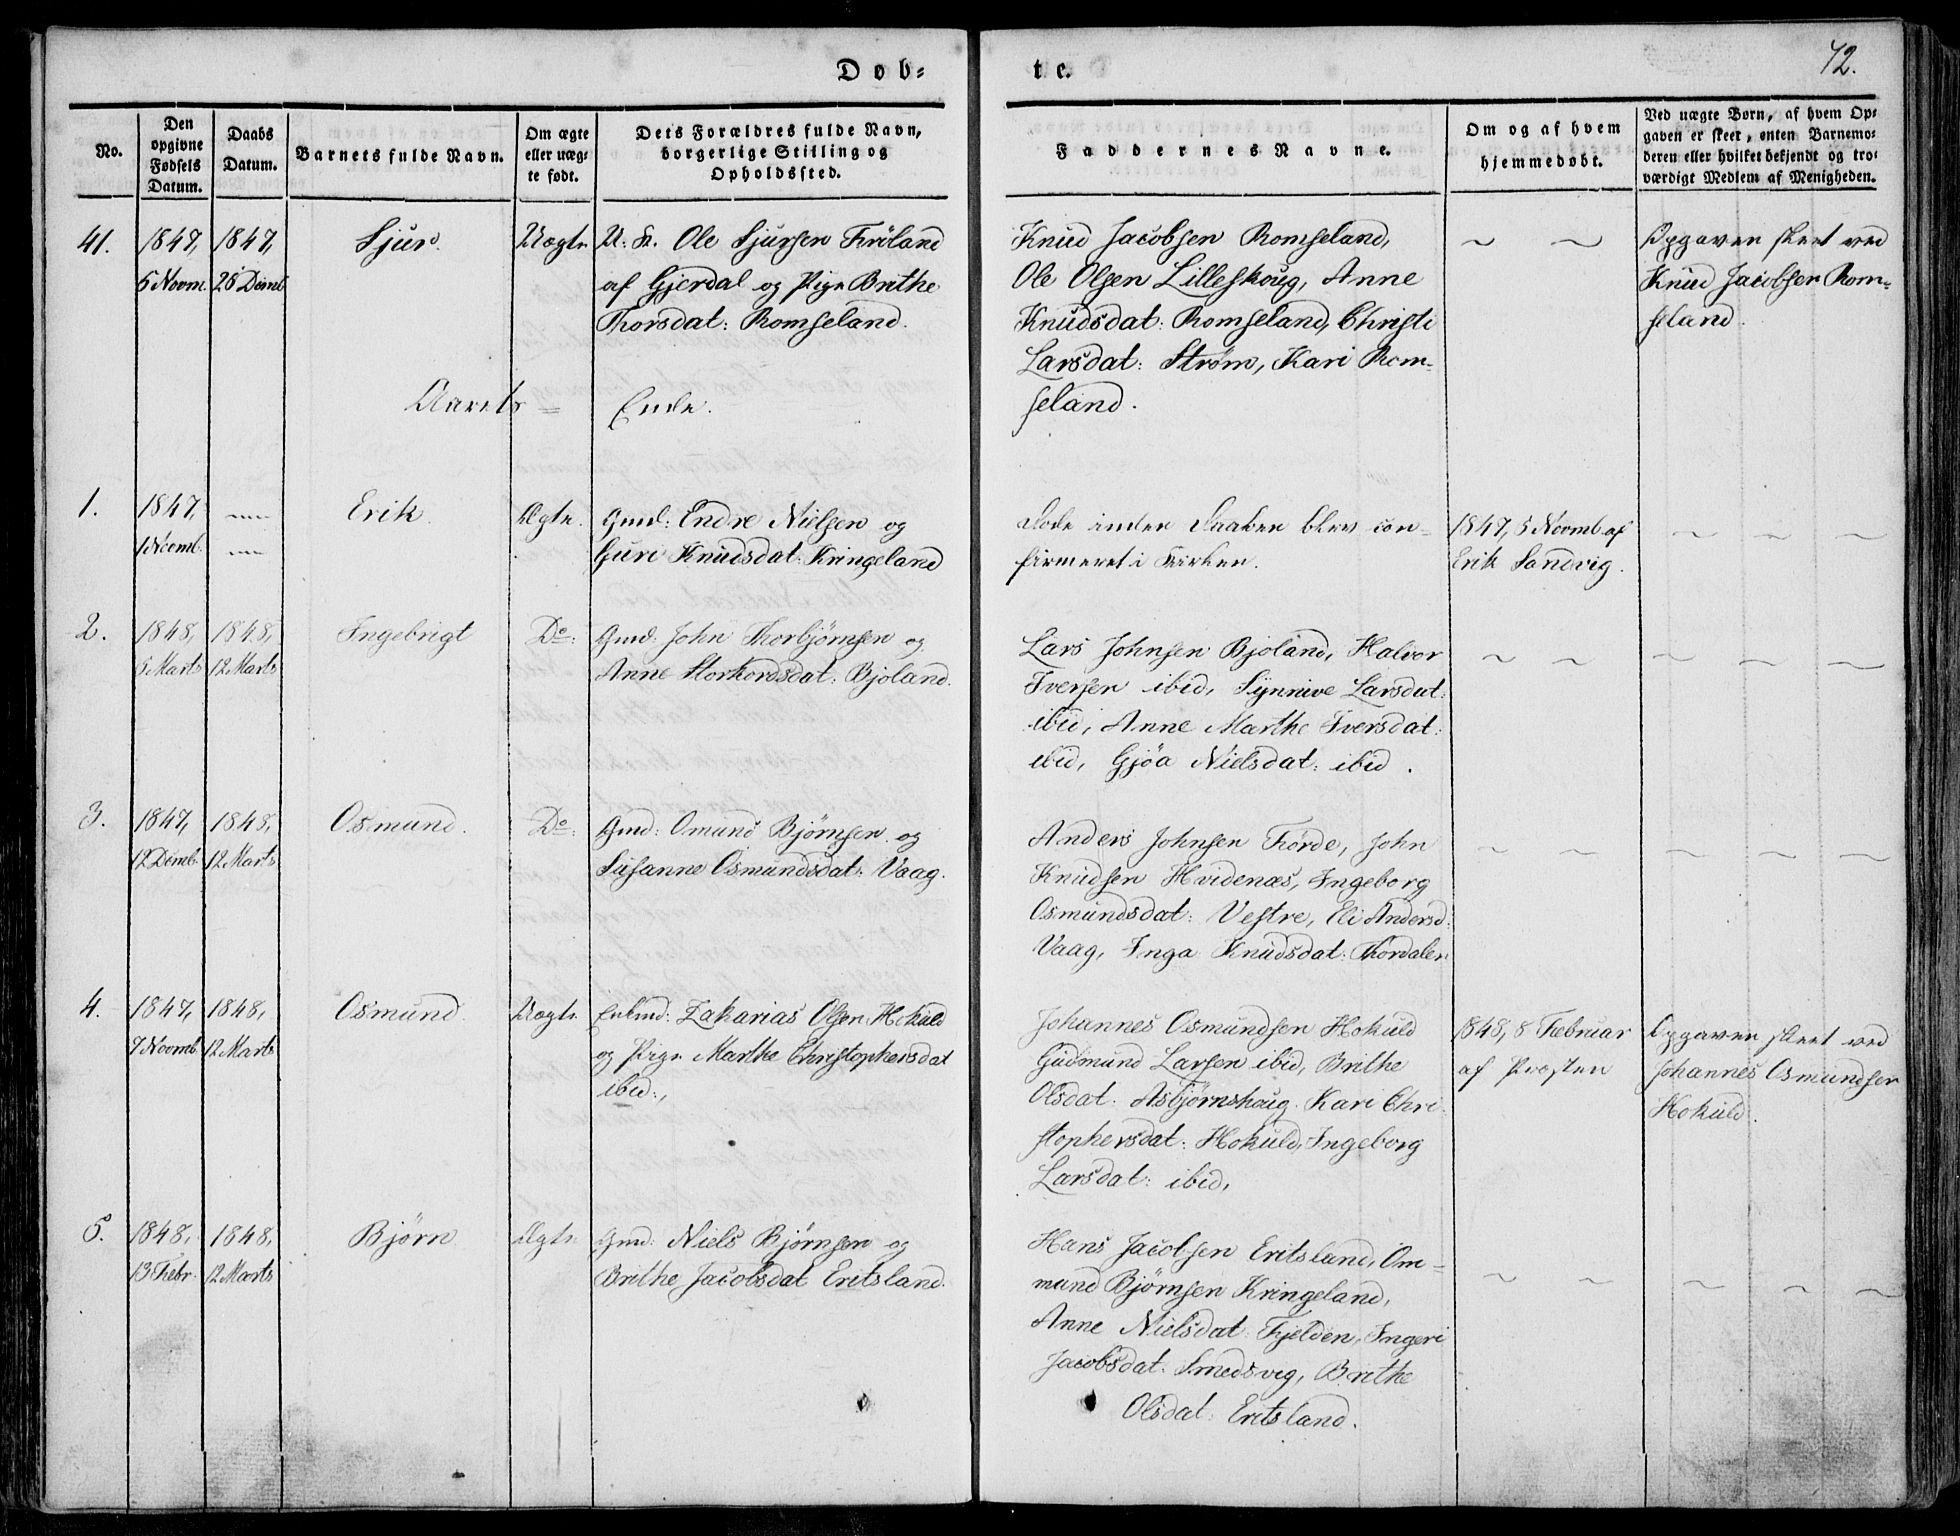 Døb-
te.
72.
No.
Den opgivne Fødsels Datum.
Daabs Datum.
Barnets fulde Navn.
Om ægte eller uægte født.
Dets Forældres fulde Navn, borgerlige Stilling og Opholdssted.
Faddernes Navne.
Om og af hvem hjemmedøbt.
Ved uægte Børn, af hvem Opgaven er skeet, enten Barnemoderen eller hvilket bekjendt og troværdigt Medlem af Menigheden.
41.
1847,
5 Novm.
1847,
26 Decmb
Sjur.
Uægte
U: K. Ole Sjursen Fröland
af Gjerdal og Pige Brithe
Thorsdat: Romseland.
Knud Jacobsen Romseland,
Ole Olsen Lilleskoug, Anne
Knudsdat: Romseland, Christi
Larsdat: Strøm, Kari Rom-
seland.
Opgaven skeet ved
Knud Jacobsen Rom-
seland.
Aarets = Ende.
1.
1847,
1 Novmb.
Erik
Ægte.
Gmd: Endre Nielsen og
Guri Knudsdat: Kringeland
Døde inden Daaben blev con-
firmeret i Kirken.
1847, 5 Novmb. af
Erik Sandvig.
2.
1848,
5 Marts
1848,
12 Marts
Ingebrigt
Do:
Gmd: John Thorbjørnsen og
Anne Storkordsdat: Bjoland.
Lars Johnsen Bjoland, Halvor
Iversen ibid, Synnive Larsdat:
ibid, Anne Marthe Iversdat:
ibid, Gjöa Nielsdat: ibid.
3.
1847,
12 Decmb.
1848,
12 Marts
Osmund.
Do:
Gmd: Omund Björnsen og
Susanne Osmundsdat: Vaag.
Anders Johnsen Förde, John
Knudsen Hvidenæs, Ingeborg
Osmundsdat: Vestre, Eli Andersd:
Vaag, Inga Knudsdat: Thordalen
4.
1847,
7 Novmb.
1848,
12 Marts
Osmund.
Uægte
Enkmd: Zakarias Olsen Hokuld
og Pige Marthe Christophersdat
ibid:,
Johannes Osmundsen Hokuld
Gudmund Larsen ibid, Brithe
Olsdat: Asbjørnshoug. Kari Chri-
stophersdat: Hokuld, Ingeborg
Larsdat: ibid,
1848, 8 Februar
af Præsten
Opgaven skeet ved
Johannes Osmundsen
Hokuld.
5.
1848,
13 Febr.
1848,
12 Marts
Bjørn
Ægte
Gmd: Niels Bjørnsen og
Brithe Jacobsdat Eritsland.
Hans Jacobsen Eritsland, Om-
mund Bjørnsen Kringeland,
Anne Nielsdat: Fjelden, Ingeri
Jacobsdat: Smedsvig, Brithe
Olsdat: Eritsland.